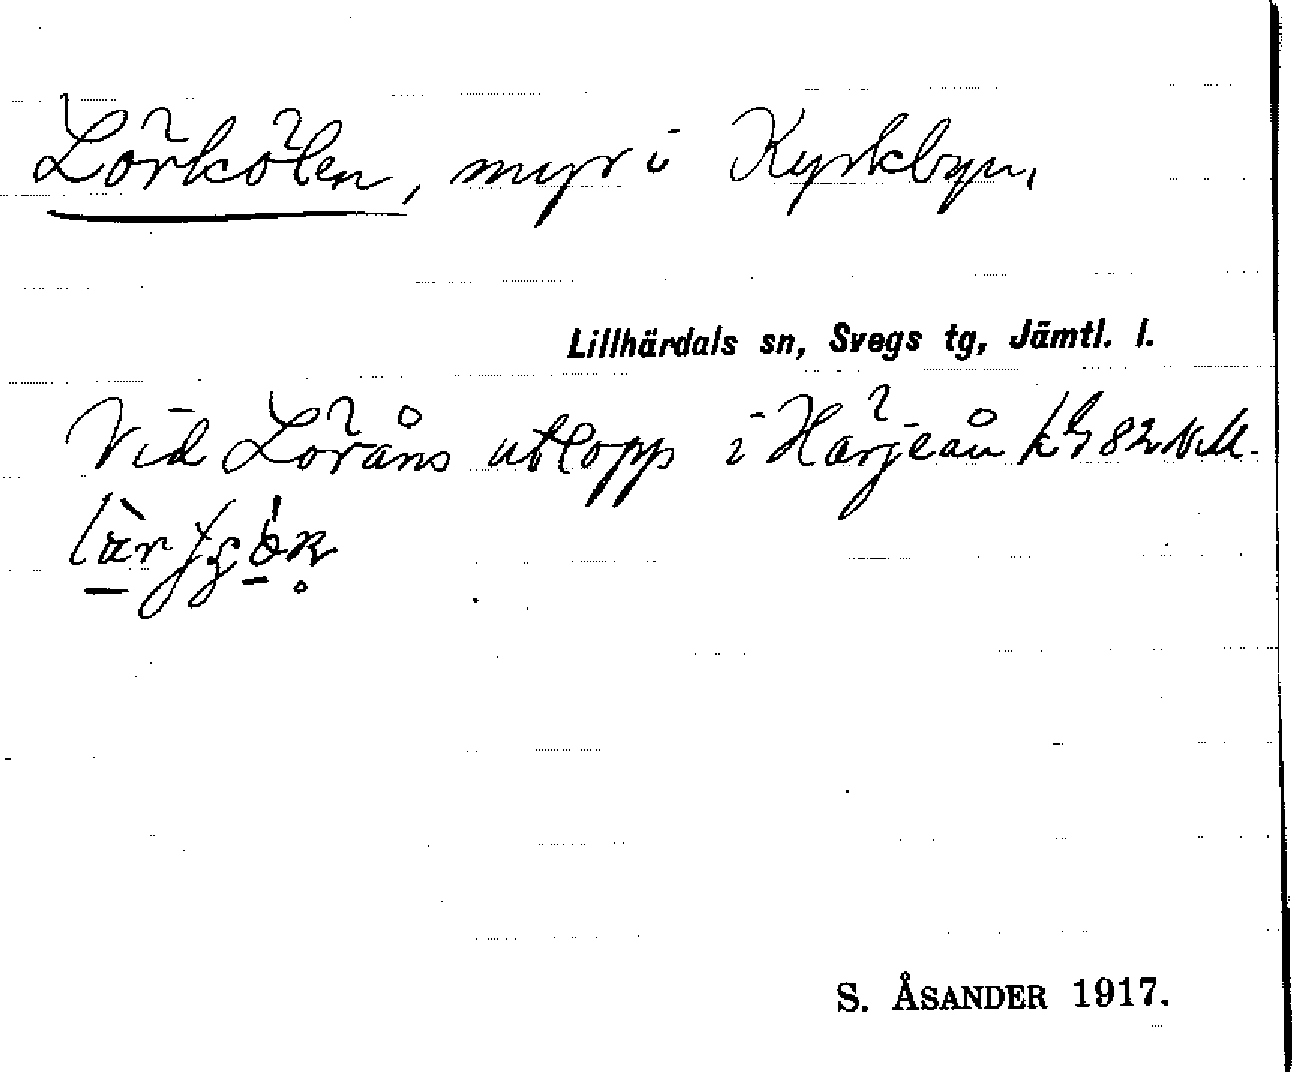 Lörkölen, myr i Kyrkbyn.
Lillhärdals sn, Svegs tg, Jämtl. l.
Vid Löråns utlopp i Härjeån 82 N.M.
S. ÅSANDER 1917.